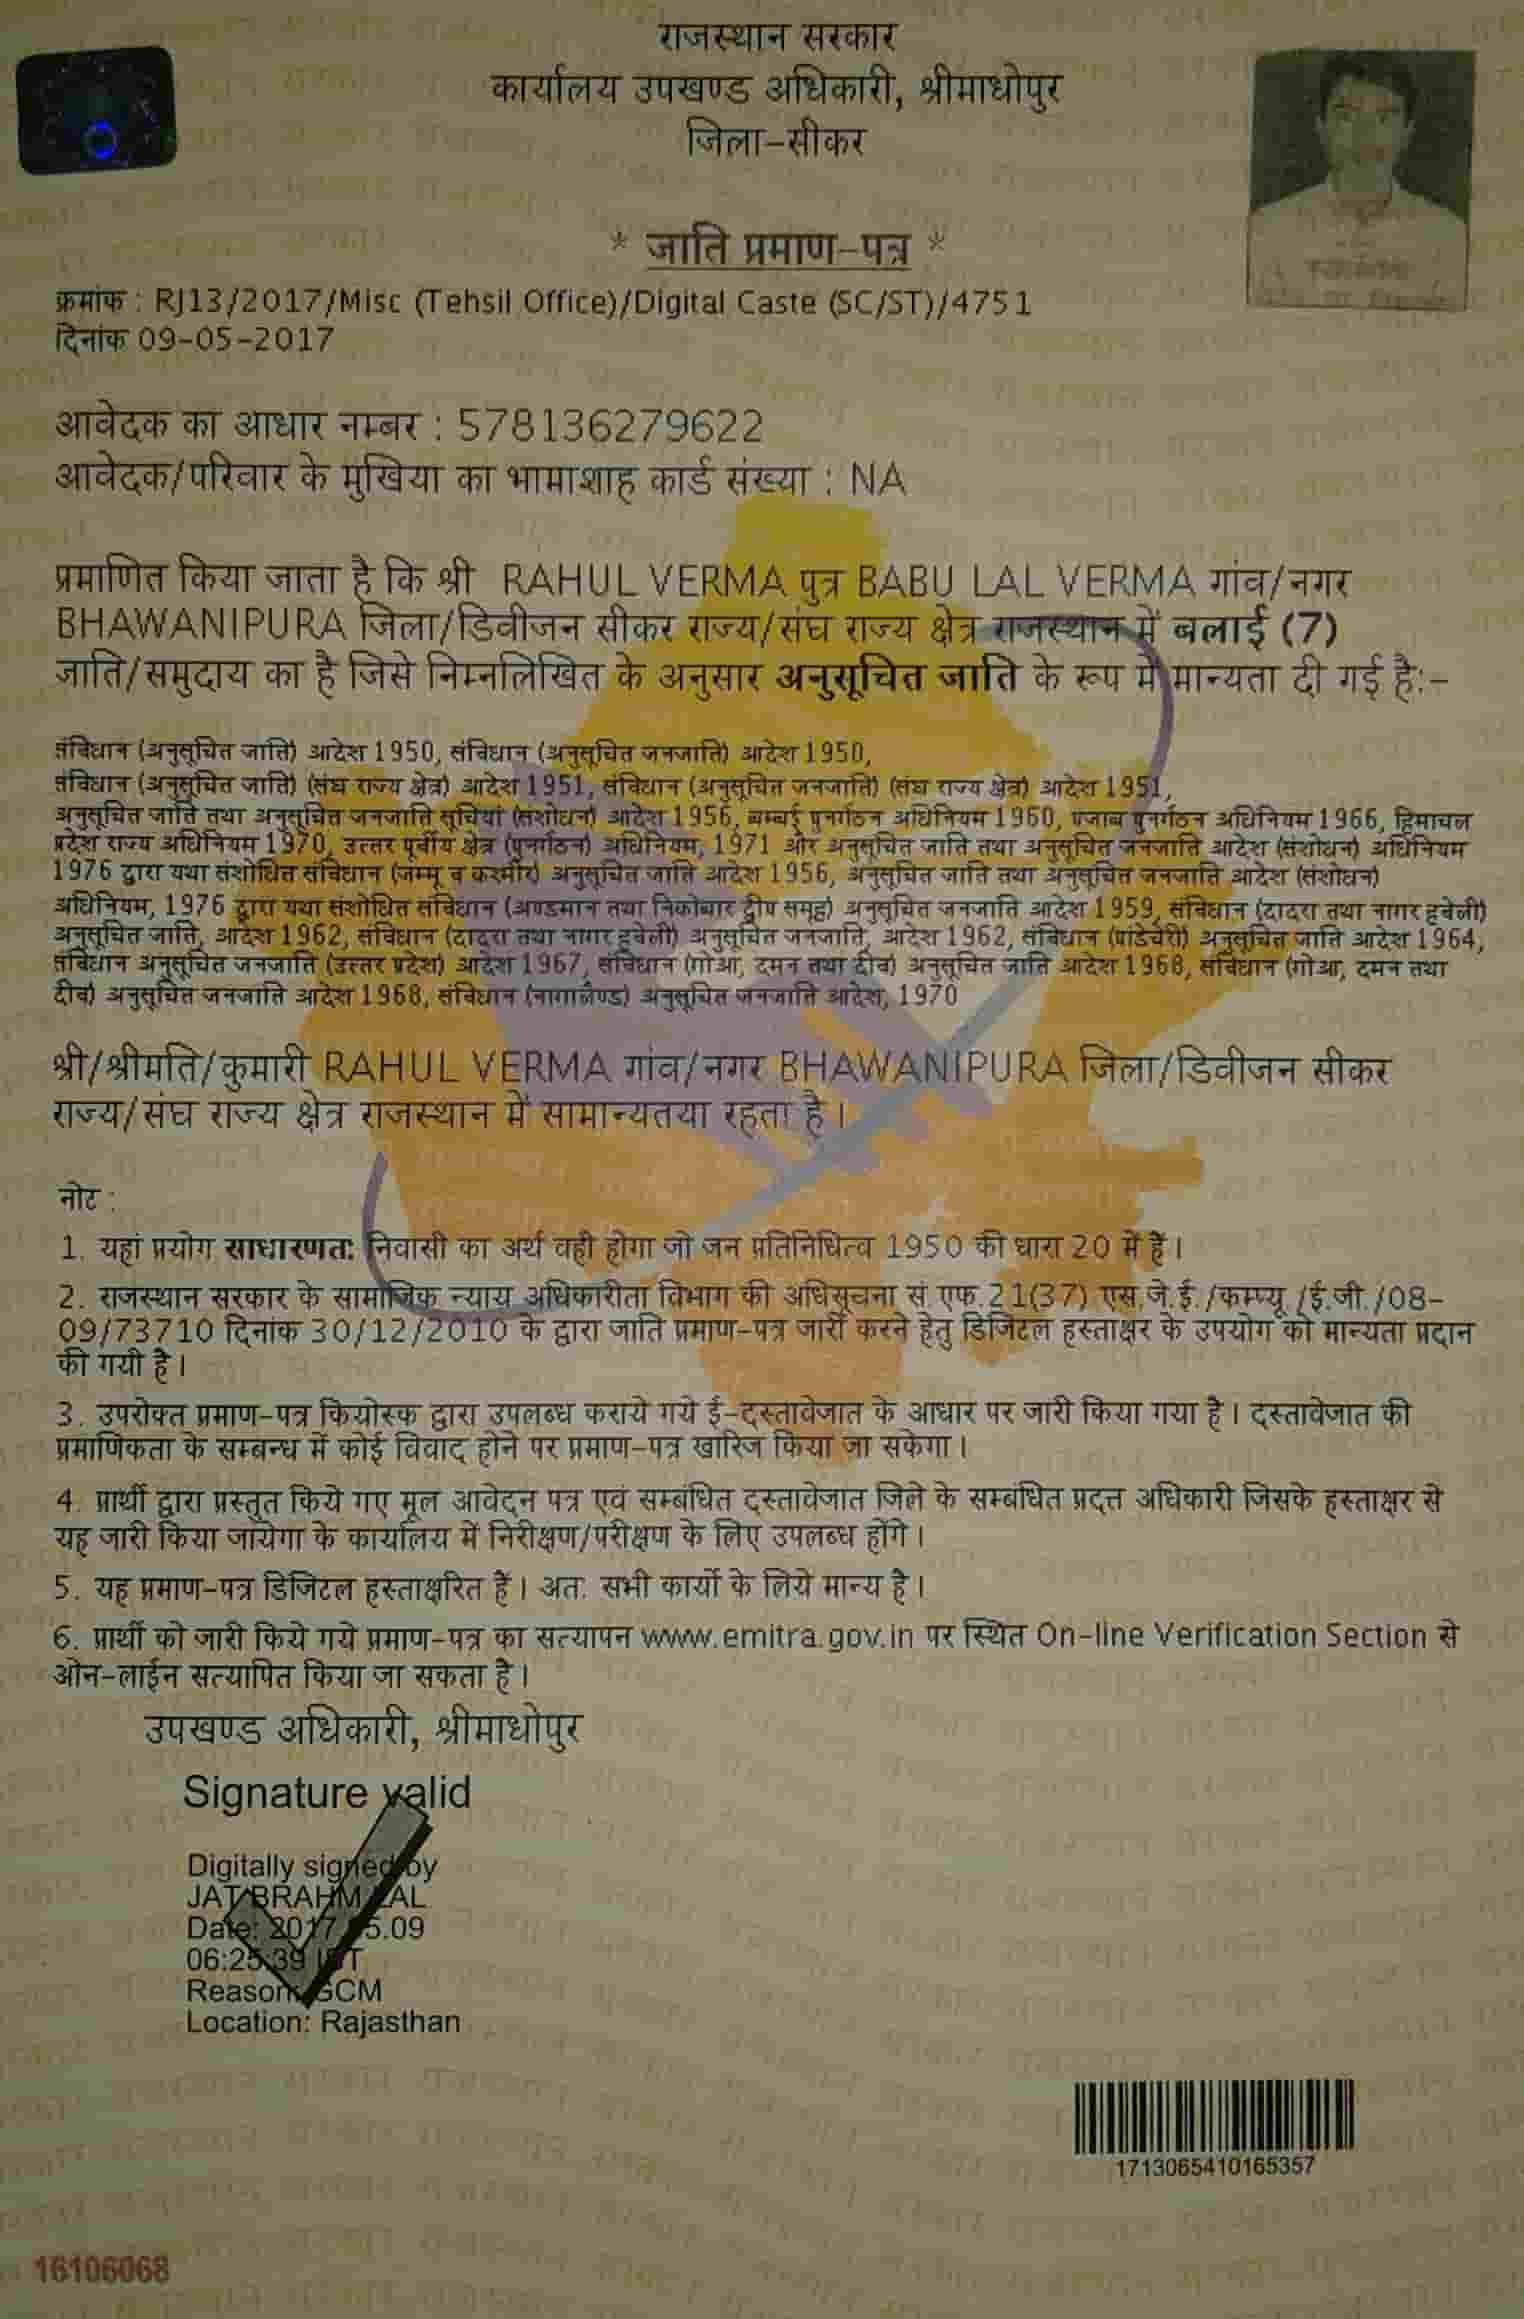 राजस्थान सरकार
कार्यालय उपखण्ड अधिकारी, श्रीमाधोपुर
जिला-सीकर
* जाति प्रमाण-पत्र *
क्रमांक : RJ13/2017/Misc (Tehsil Office)/Digital Caste (SC/ST)/4751
दिनांक 09-05-2017
आवेदक का आधार नम्बर : 578136279622
आवेदक/परिवार के मुखिया का भामाशाह कार्ड संख्या : NA
प्रमाणित किया जाता है कि श्री RAHUL VERMA पुत्र BABU LAL VERMA गांव/नगर
BHAWANIPURA जिला/डिवीजन सीकर राज्य/संघ राज्य क्षेत्र राजस्थान में बलाई (7)
जाति/समुदाय का है जिसे निम्नलिखित के अनुसार अनुसूचित जाति के रूप में मान्यता दी गई है:-
संविधान (अनुसूचित जाति) आदेश 1950, संविधान (अनुसूचित जनजाति) आदेश 1950,
संविधान (अनुसूचित जाति) (संघ राज्य क्षेत्र) आदेश 1951, संविधान (अनुसूचित जनजाति) (संघ राज्य क्षेत्र) आदेश 1951,
अनुसूचित जाति तथा अनुसूचित जनजाति सूचियां (संशोधन) आदेश 1956, बम्बई पुनर्गठन अधिनियम 1960, पंजाब पुनर्गठन अधिनियम 1966, हिमाचल
प्रदेश राज्य अधिनियम 1970, उत्तर पूर्वीय क्षेत्र (पुनर्गठन) अधिनियम, 1971 और अनुसूचित जाति तथा अनुसूचित जनजाति आदेश (संशोधन) अधिनियम
1976 द्वारा यथा संशोधित संविधान (जम्मू व कश्मीर) अनुसूचित जाति आदेश 1956, अनुसूचित जाति तथा अनुसूचित जनजाति आदेश (संशोधन)
अधिनियम, 1976 द्वारा यथा संशोधित संविधान (अण्डमान तथा निकोबार द्वीप समूह) अनुसूचित जनजाति आदेश 1959, संविधान (दादरा तथा नागर हवेली)
अनुसूचित जाति, आदेश 1962, संविधान (दादरा तथा नागर हवेली) अनुसूचित जनजाति, आदेश 1962, संविधान (पांडिचेरी) अनुसूचित जाति आदेश 1964,
संविधान अनुसूचित जनजाति (उत्तर प्रदेश) आदेश 1967, संविधान (गोआ, दमन तथा दीव) अनुसूचित जाति आदेश 1968, संविधान (गोआ, दमन तथा
दीव) अनुसूचित जनजाति आदेश 1968, संविधान (नागालैण्ड) अनुसूचित जनजाति आदेश, 1970
श्री/श्रीमति/कुमारी RAHUL VERMA गांव/नगर BHAWANIPURA जिला/डिवीजन सीकर
राज्य/संघ राज्य क्षेत्र राजस्थान में सामान्यतया रहता है।
नोट :
1. यहां प्रयोग साधारणत: निवासी का अर्थ वही होगा जो जन प्रतिनिधित्व 1950 की धारा 20 में है।
2. राजस्थान सरकार के सामाजिक न्याय अधिकारीता विभाग की अधिसूचना सं.एफ.21(37) एस.जे.ई./कम्प्यू./ई.जी./08-
09/73710 दिनांक 30/12/2010 के द्वारा जाति प्रमाण-पत्र जारी करने हेतु डिजिटल हस्ताक्षर के उपयोग को मान्यता प्रदान
की गयी है।
3. उपरोक्त प्रमाण-पत्र कियोस्क द्वारा उपलब्ध कराये गये ई-दस्तावेजात के आधार पर जारी किया गया है। दस्तावेजात की
प्रमाणिकता के सम्बन्ध में कोई विवाद होने पर प्रमाण-पत्र खारिज किया जा सकेगा।
4. प्रार्थी द्वारा प्रस्तुत किये गए मूल आवेदन पत्र एवं सम्बंधित दस्तावेजात जिले के सम्बंधित प्रदत्त अधिकारी जिसके हस्ताक्षर से
यह जारी किया जायेगा के कार्यालय में निरीक्षण/परीक्षण के लिए उपलब्ध होंगे।
5. यह प्रमाण-पत्र डिजिटल हस्ताक्षरित हैं। अत: सभी कार्यो के लिये मान्य है।
6. प्रार्थी को जारी किये गये प्रमाण-पत्र का सत्यापन www.emitra.gov.in पर स्थित On-line Verification Section से
ओन-लाईन सत्यापित किया जा सकता है।
उपखण्ड अधिकारी, श्रीमाधोपुर
Signature valid
Digitally signed by
JAT BRAHM LAL
Date: 2017.05.09
06:25:39 IST
Reason: GCM
Location: Rajasthan
1713065410165357
16106068